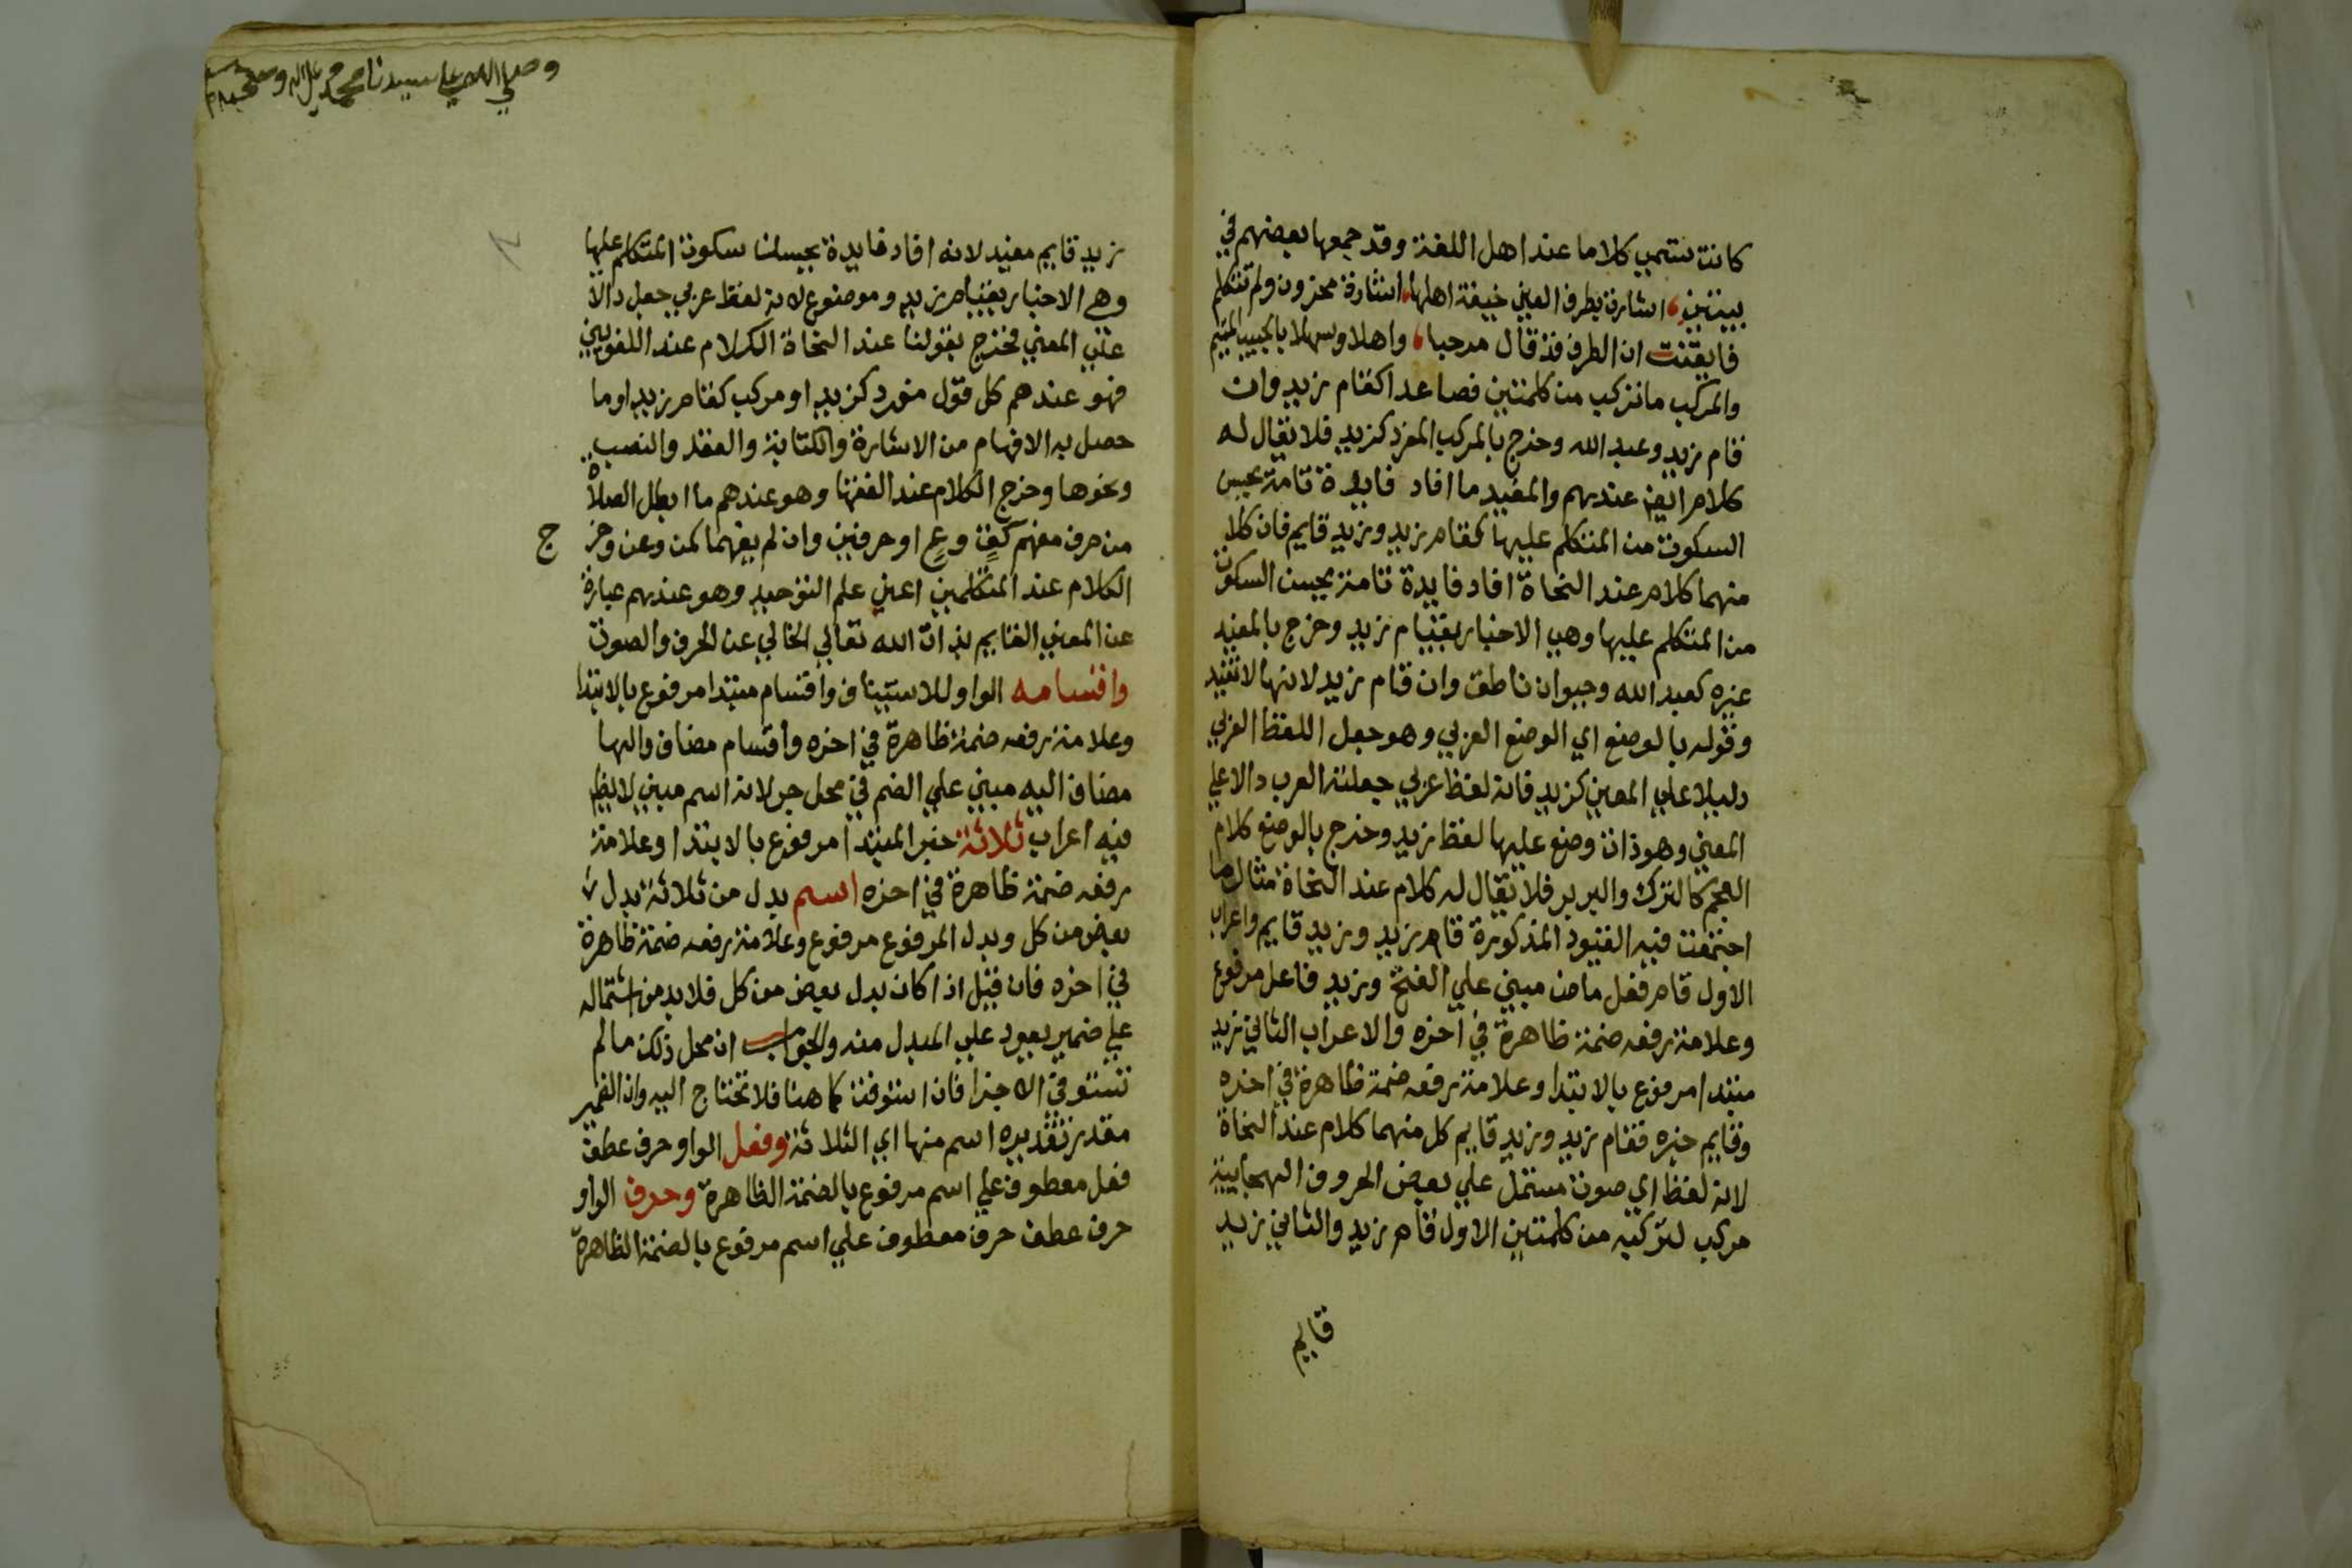 كانت تسمي كلاما عند اهل اللغة وقد جمعها بعضهم في
بيتين، اشارت بطرف العين خيفة اهلها، اشارة محزون ولم تتكلم
فايقنت ان الطرف قد قال مرحبا، واهلا وسهلا بالحبيب المتيم
والمركب ما تركب من كلمتين فصاعدا كقام زيد وان
قام زيد وعبد الله وخرج بالمركب المفرد كزيد فلا يقال له
كلام ايضا عندهم والمفيد ما افاد فايدة تامة يحسن
السكوت من المتكلم عليها كقام زيد وزيد قايم فان كلا
منهما كلام عند النحاة افاد فايدة تامة يحسن السكوت
من المتكلم عليها وهي الاخبار بقيام زيد وخرج بالمفيد
غيره كعبد الله وحيوان ناطق وان قام زيد لانها لا تفيد
وقوله بالوضع اي الوضع العربي وهو جعل اللفظ العربي
دليلا علي المعني كزيد فانه لفظ عربي جعلته العرب دالا علي
المعني وهو ذات وضع عليها لفظ زيد وخرج بالوضع كلام
العجم كالترك والبربر فلا يقال له كلام عند النحاة مثال ما
اجتمعت فيه القيود المذكورة قام زيد وزيد قايم واعراب
الاول قام فعل ماض مبني علي الفتح وزيد فاعل مرفوع
وعلامة رفعه ضمة ظاهرة في اخره والاعراب الثاني زيد
مبتدا مرفوع بالابتدا وعلامة رفعه ضمة ظاهرة في اخره
وقايم خبره فقام زيد وزيد قايم كل منهما كلام عند النحاة
لانه لفظ اي صوت مشتمل علي بعض الحروف الهجايية
مركب لتركبه من كلمتين الاول قام زيد والثاني زيد
قايم
وصلي الله علي سيدنا محمد وعلي اله وصحبه وسلم
زيد قايم مفيد لانه افاد فايدة يحسن سكوت المتكلم عليها
وهي الاخبار بقيام زيد وموضوع لانه لفظ عربي جعل دالا
علي المعني فخرج بقولنا عند النحاة الكلام عند اللغويين
فهو عندهم كل قول مفرد كزيد او مركب كقام زيد او ما
حصل به الافهام من الاشارة والكتابة والعقد والنصب
ونحوها وخرج الكلام عند الفقها وهو عندهم ما ابطل الصلاة
من حرف مفهم كقِ وعِ او حرفين وان لم يفهما كمن وعن وخرج
الكلام عند المتكلمين اعني علم التوحيد وهو عندهم عبارة
عن المعني القايم بذات الله تعالي الخالي عن الحرف والصوت
واقسامه الواو للاستيناف واقسام مبتدا مرفوع بالابتدا
وعلامة رفعه ضمة ظاهرة في اخره واقسام مضاف والها
مضاف اليه مبني علي الضم في محل جر لانه اسم مبني لا يظهر
فيه اعراب ثلاثة خبر المبتدا مرفوع بالابتدا وعلامة
رفعه ضمة ظاهرة في اخره اسم بدل من ثلاثة بدل
بعض من كل وبدل المرفوع مرفوع وعلامة رفعه ضمة ظاهرة
في اخره فان قيل اذا كان بدل بعض من كل فلا بد من اشتماله
علي ضمير يعود علي المبدل منه والجواب ان محل ذلك ما لم
تستوفي الاجزا فان استوفت كما هنا فلا تحتاج اليه وان الضمير
مقدر تقديره اسم منها اي الثلاثة وفعل الواو حرف عطف
فعل معطوف علي اسم مرفوع بالضمة الظاهرة وحرف الواو
حرف عطف حرف معطوف علي اسم مرفوع بالضمة الظاهرة